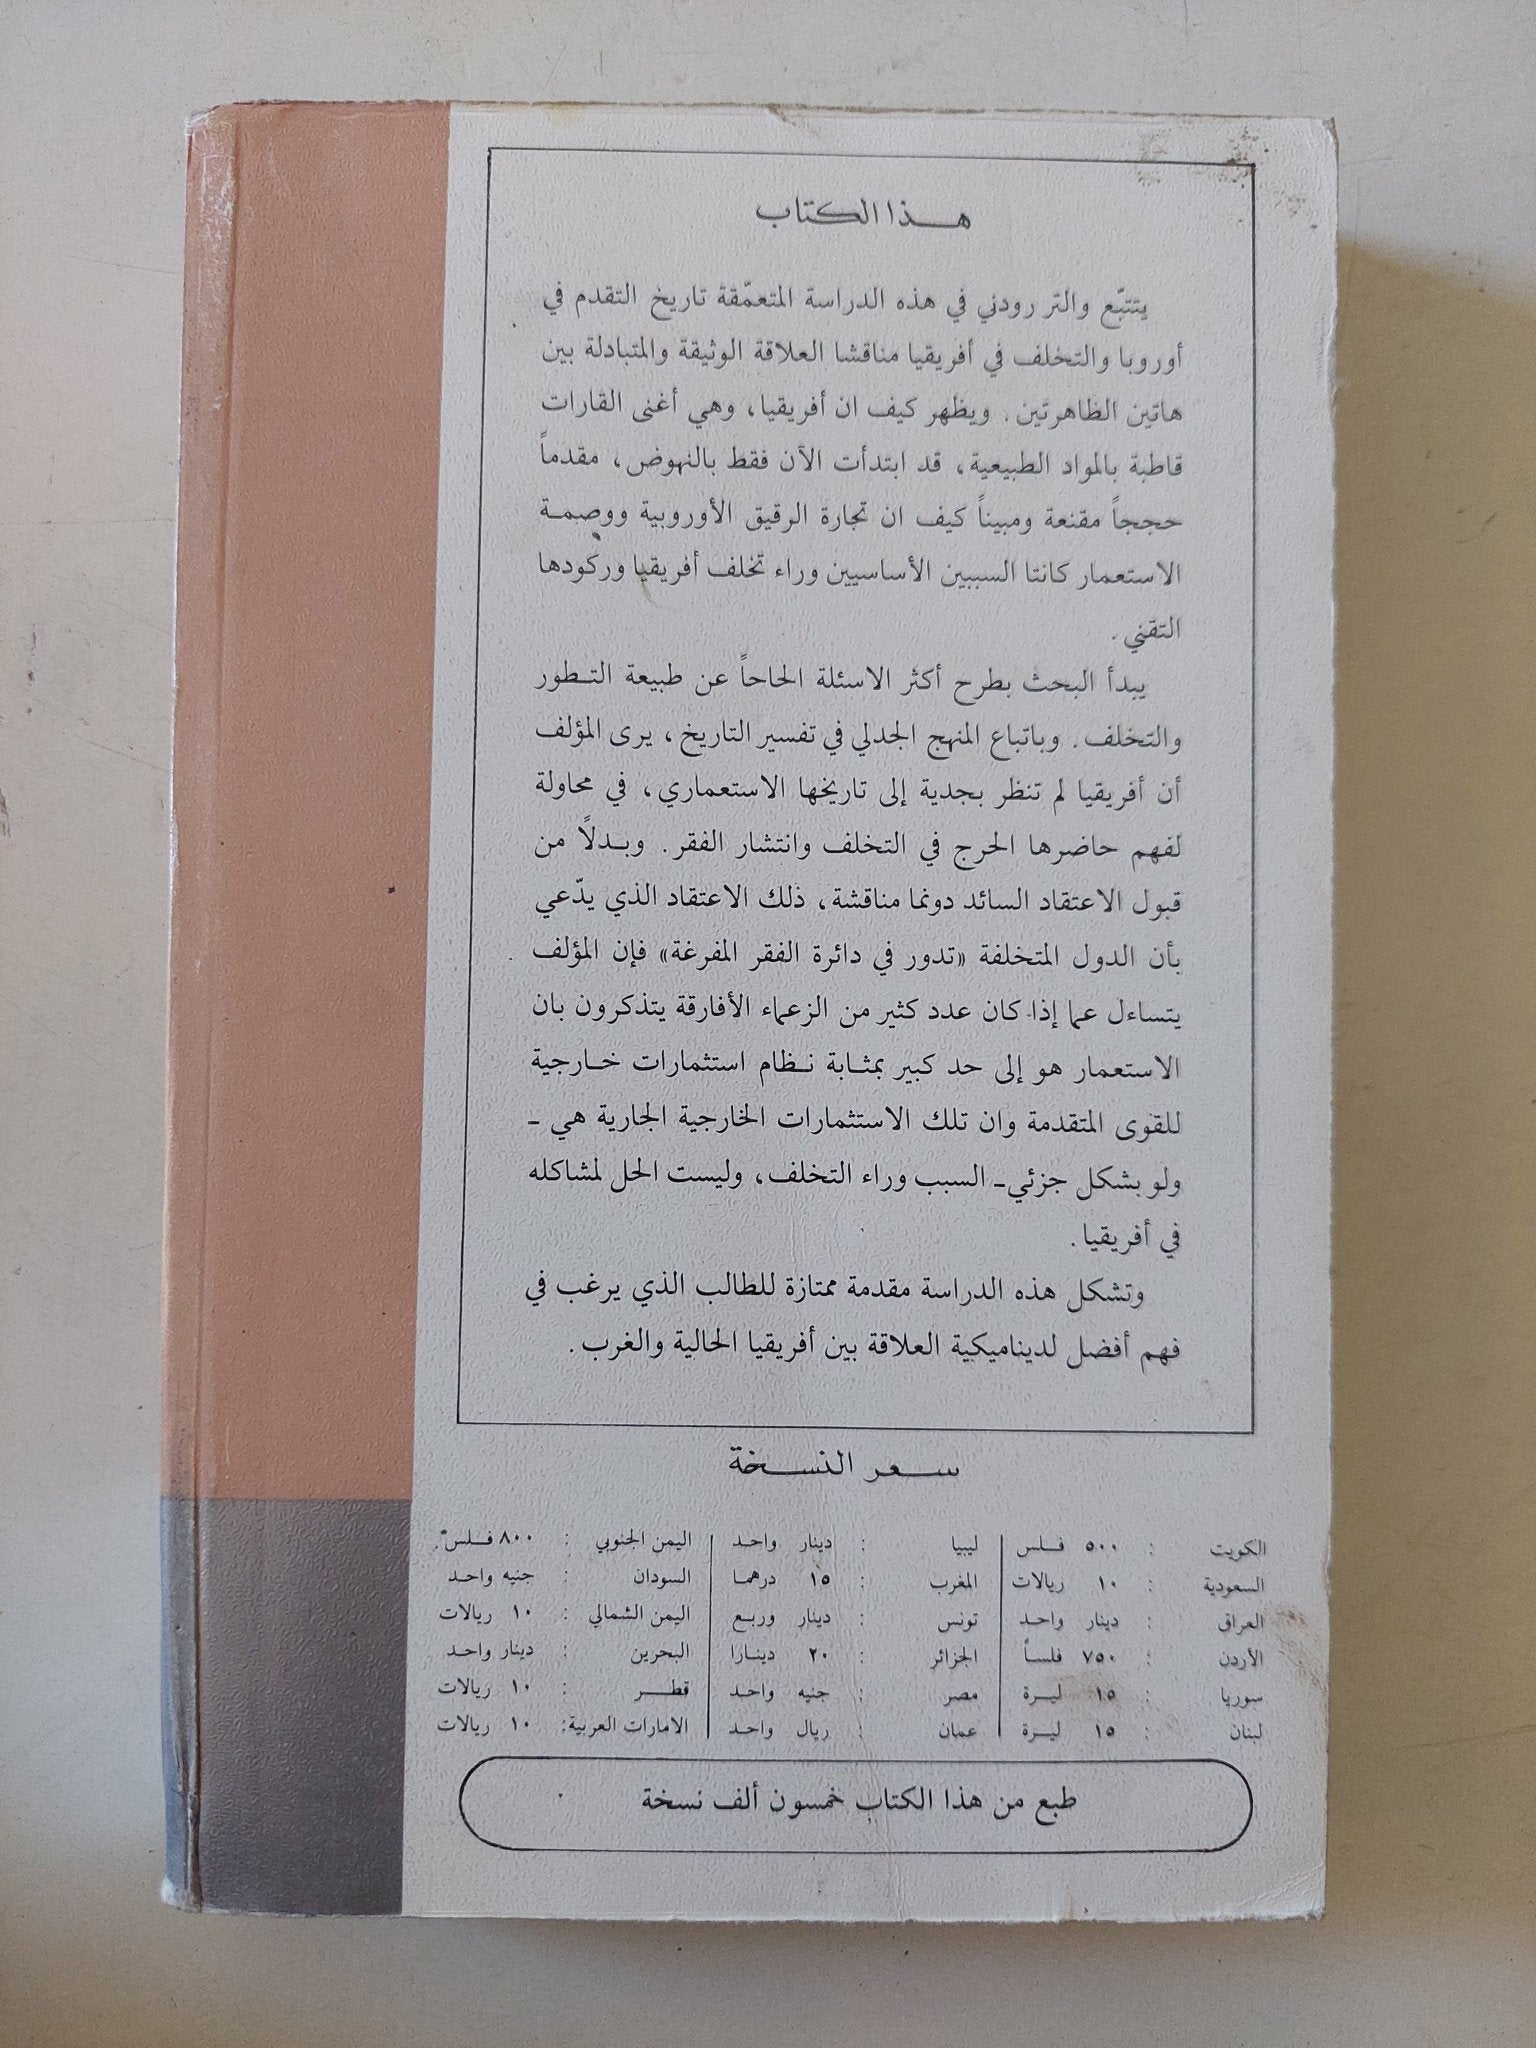 هذا الكتاب
يتتبّع والتر رودني في هذه الدراسة المتعمّقة تاريخ التقدم في
أوروبا والتخلف في أفريقيا مناقشا العلاقة الوثيقة والمتبادلة بين
هاتين الظاهرتين. ويظهر كيف ان أفريقيا، وهي أغنى القارات
قاطبة بالمواد الطبيعية، قد ابتدأت الآن فقط بالنهوض، مقدماً
حججاً مقنعة ومبيناً كيف ان تجارة الرقيق الأوروبية ووصمة
الاستعمار كانتا السببين الأساسيين وراء تخلف أفريقيا وركودها
التقني.
يبدأ البحث بطرح أكثر الاسئلة الحاحاً عن طبيعة التطور
والتخلف. وباتباع المنهج الجدلي في تفسير التاريخ، يرى المؤلف
أن أفريقيا لم تنظر بجدية إلى تاريخها الاستعماري، في محاولة
لفهم حاضرها الحرج في التخلف وانتشار الفقر. وبدلاً من
قبول الاعتقاد السائد دونما مناقشة، ذلك الاعتقاد الذي يدّعي
بأن الدول المتخلفة «تدور في دائرة الفقر المفرغة» فإن المؤلف
يتساءل عما إذا كان عدد كثير من الزعماء الأفارقة يتذكرون بان
الاستعمار هو إلى حد كبير بمثابة نظام استثمارات خارجية
للقوى المتقدمة وان تلك الاستثمارات الخارجية الجارية هي -
ولو بشكل جزئي- السبب وراء التخلف، وليست الحل لمشاكله
في أفريقيا.
وتشكل هذه الدراسة مقدمة ممتازة للطالب الذي يرغب في
فهم أفضل لديناميكية العلاقة بين أفريقيا الحالية والغرب.
سعر النسخة
الكويت : ٥٠٠ فلس | ليبيا : دينار واحد | اليمن الجنوبي : ٨٠٠ فلس
السعودية : ١٠ ريالات | المغرب : ١٥ درهما | السودان : جنيه واحد
العراق : دينار واحد | تونس : دينار وربع | اليمن الشمالي : ١٠ ريالات
الأردن : ٧٥٠ فلساً | الجزائر : ٢٠ دينارا | البحرين : دينار واحد
سوريا : ١٥ ليرة | مصر : جنيه واحد | قطر : ١٠ ريالات
لبنان : ١٥ ليرة | عمان : ريال واحد | الامارات العربية: ١٠ ريالات
طبع من هذا الكتاب خمسون ألف نسخة